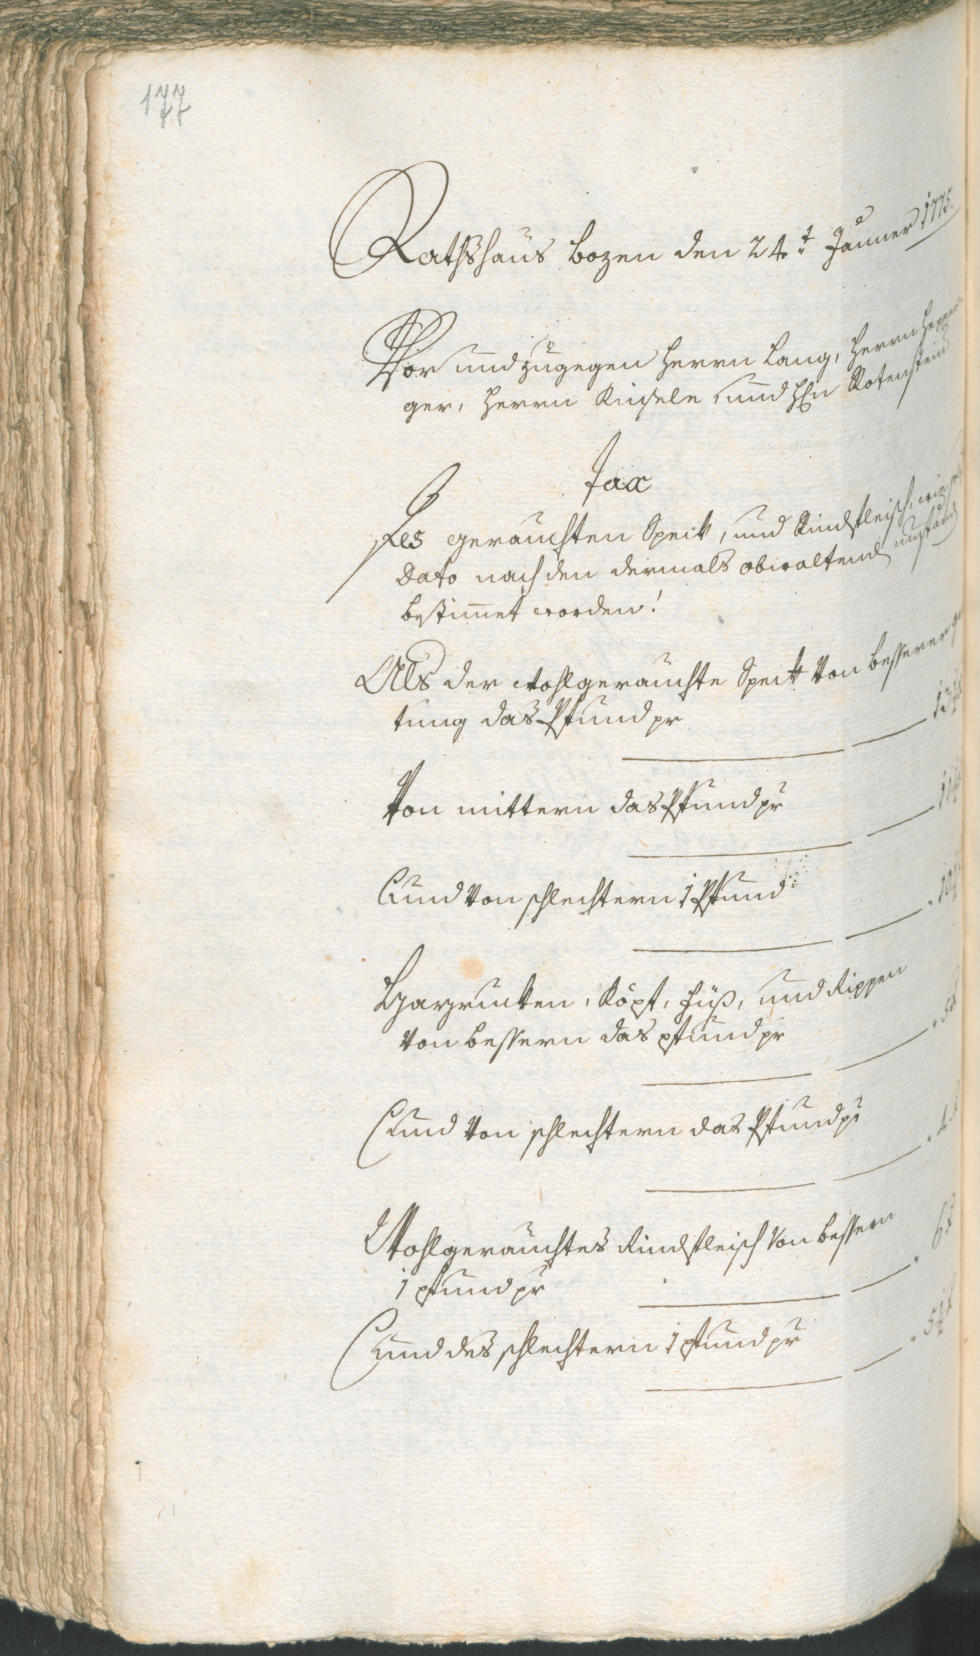 177
Rathshaus Bozen den 24t Jänner 1775.
Vor und zugegen Herrn Lang, Herrn
ger, Herrn Kuisele und Hrn Rotenstein
Tax
des geraüchten Speck, und Rindfleisch, wie
Dato nach den dermals obwaltend umständ
bestimet worden!
Als der wohlgeraüchte Speck von besserer
tung das Pfund pr 13
Von mittern das Pfund pr 11
Und von schlechtern 1 Pfund 10
Harrucken, Köpf, Füß, und Rippen
von bessern das pfund pr 5
Und von schlechtern das Pfund pr 4
Wohlgeraüchtes Rindfleisch von bessern
1 pfund pr 6
Und des schlechtern 1 pfund pr 5½